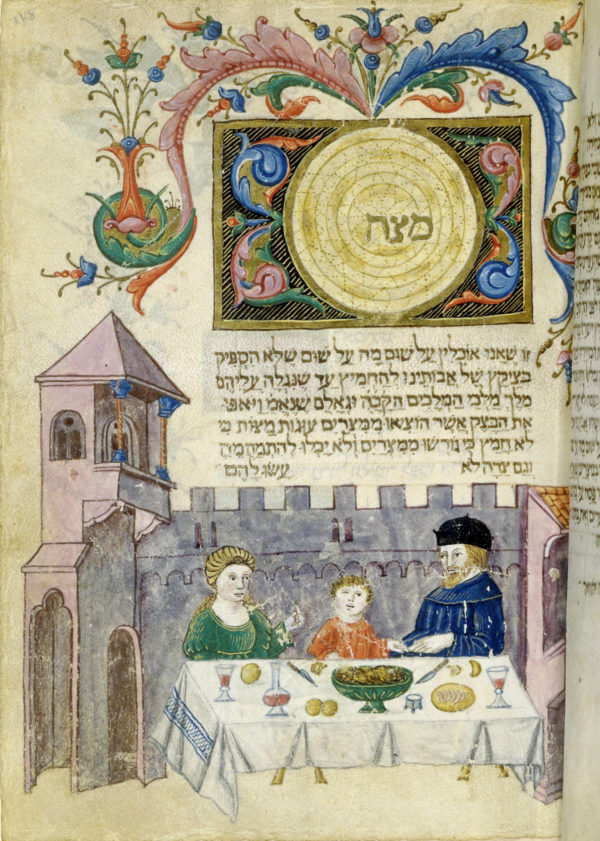 מצה
זו שאנו אוכלין על שום מה על שום שלא הספיק
בציקן של אבותינו להחמיץ עד שנגלה עליהם
מלך מלכי המלכים הקבה וגאלם שנאמ ויאפו
את הבצק אשר הוציאו ממצרים עוגות מצות כי
לא חמץ כי גורשו ממצרים ולא יכלו להתמהמה
וגם צדה לא עשו להם